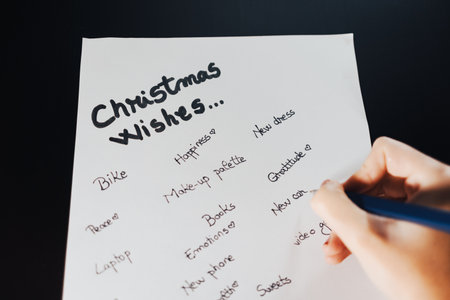 Christmas
Wishes...
Bike
Happiness♡
New dress
Peace♡
Make-up palette
Gratitude♡
Laptop
Books
New car
Emotions♡
video
New phone
Sweets